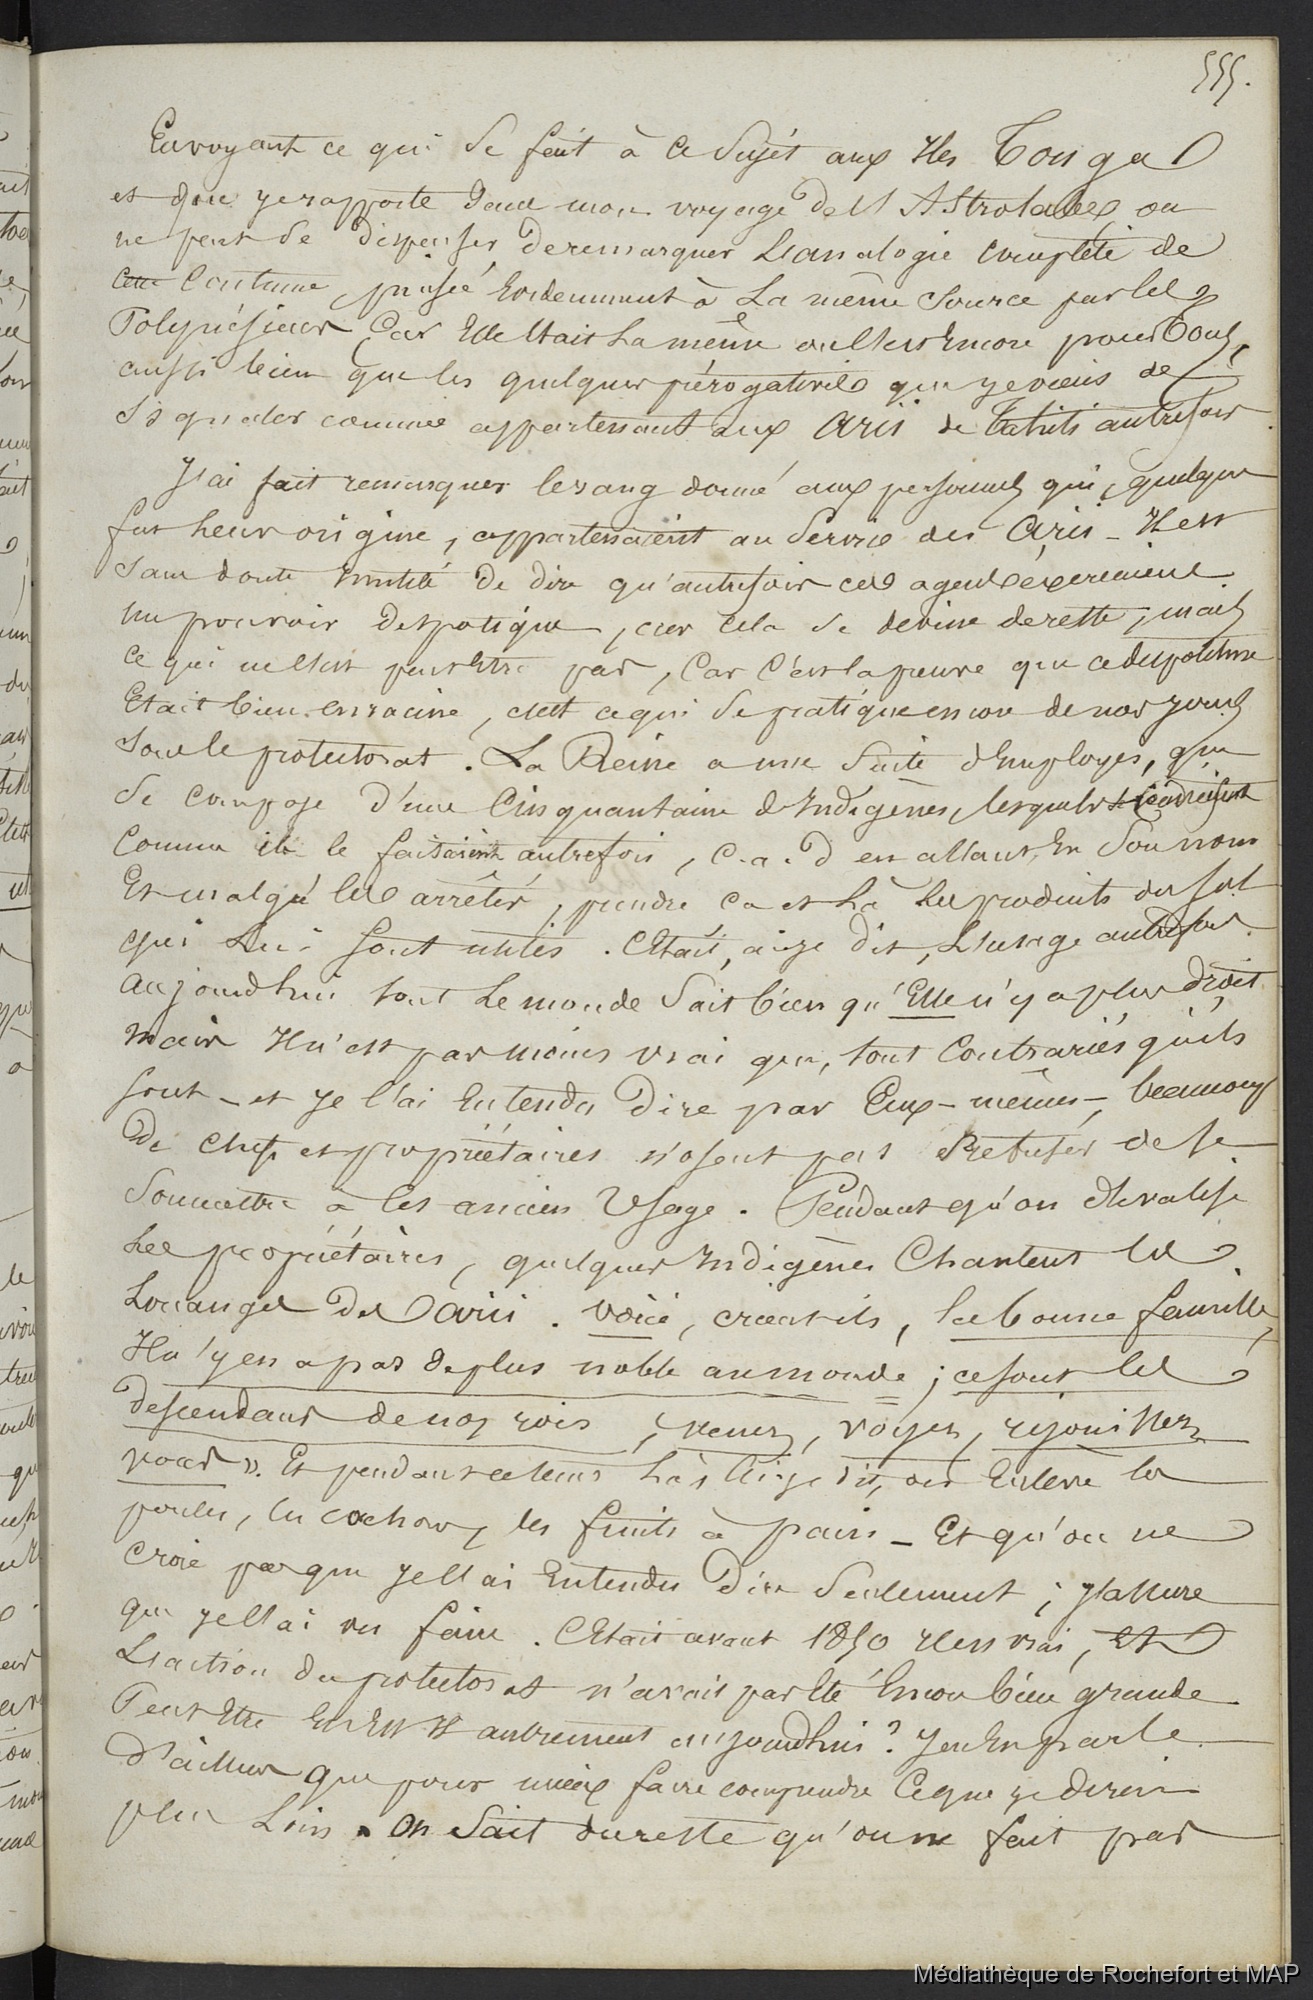 555.
En voyant ce qui se fait à ce sujet aux Iles Tonga
et que je rapporte dans mon voyage de l'Astrolabe, on
ne peut se dispenser de remarquer l'analogie complète de
cette coutume, puisée évidemment à la même source par les
Polynésiens, car Elle était la même ou l'est encore pour tous,
aussi bien que les quelques prérogatives que je viens de
signaler comme appartenant aux Ariis de Tahiti autrefois.
J'ai fait remarquer le rang donné aux personnes qui, quelque
fut leur origine, appartenaient au service des Ariis - Il est
sans doute inutile de dire qu'autrefois ces agents exerçaient
un pouvoir despotique, car cela se devine de reste, mais
ce qui ne l'est peut être pas, car c'est la preuve que ce despotisme
Etait bien enraciné, c'est ce qui se pratique encore de nos jours
sous le protectorat. La Reine a une suite d'Employés, qui
se compose d'une Cinquantaine d'Indigènes, lesquels
comme ils le faisaient autrefois, c.a.d en allant, En son nom
Et malgré les arrêtés, prendre ça et là les produits du sol
qui lui sont utiles. C'était, ai-je dit, l'usage autrefois.
Aujourd'hui tout le monde sait bien qu'Elle n'y a plus droit
mais Il n'est pas moins vrai que, tout contrariés qu'ils
sont - et je l'ai Entendu dire par Eux-mêmes -, beaucoup
de chefs et propriétaires n'osent pas refuser de se
soumettre à cet ancien Usage. Pendant qu'on dévalise
les propriétaires, quelques Indigènes Chantent les
Louanges des Ariis. Voici, crient-ils, la bonne famille,
Il n'y en a pas de plus noble au monde; ce sont les
descendans de nos rois, venez, voyez, réjouissez
vous ». Et pendant ce temps là, ai-je dit, on Enlève les
poules, les cochons, les fruits à pain - Et qu'on ne
croie pas que je l'ai Entendu dire seulement; j'assure
que je l'ai vu faire. C'était avant 1850 Il est vrai, Et
L'action du protectorat n'avait pas Eté Encore bien grande
Peut Etre En Est Il autrement aujourd'hui? Je n'En parle
d'ailleurs que pour mieux faire comprendre ce que je dirai
plus Loin. On sait du reste qu'on ne fait pas
Médiathèque de Rochefort et MAP